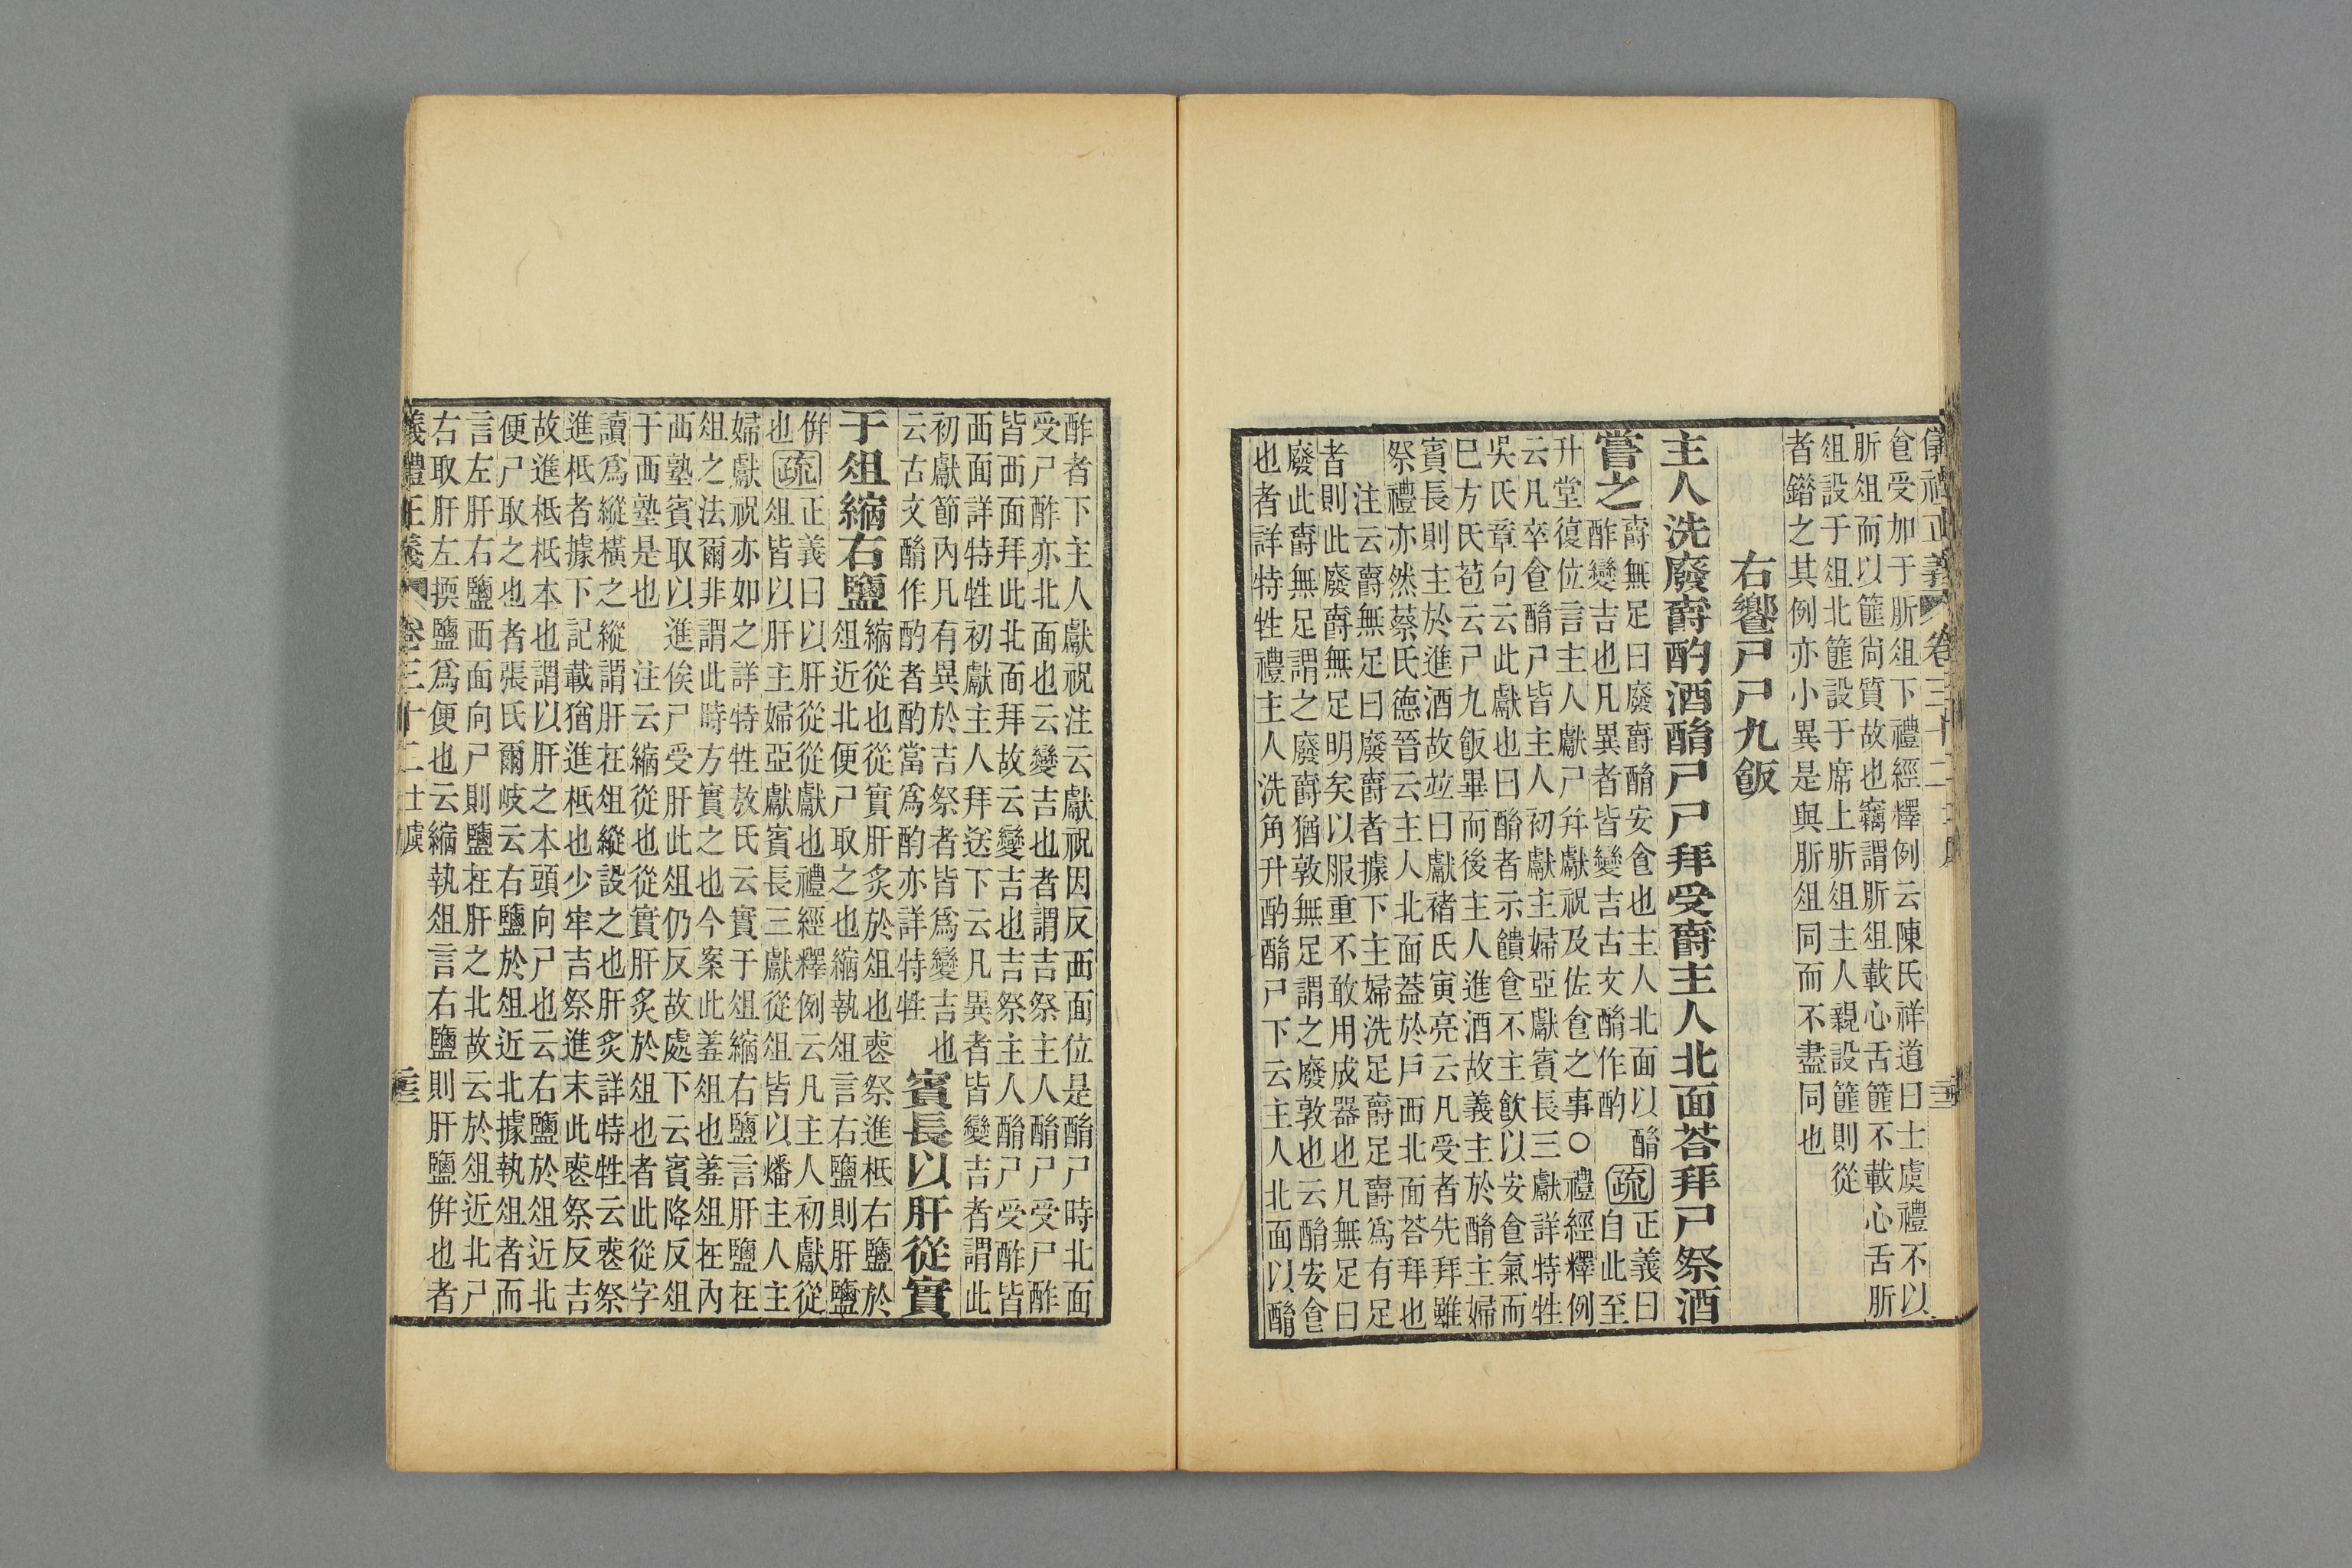 儀禮正義 卷三十二 士虞 三三
食受加于肵俎下禮經釋例云陳氏祥道曰士虞禮不以
肵俎而以篚尙質故也竊謂肵俎載心舌篚不載心舌肵
俎設于俎北篚設于席上肵俎主人親設篚則從
者錯之其例亦小異是與肵俎同而不盡同也
右饗尸尸九飯
主人洗廢爵酌酒酳尸尸拜受爵主人北面荅拜尸祭酒
嘗之
爵無足曰廢爵酳安食也主人北面以酳
酢變吉也凡異者皆變吉古文酳作酌
疏
正義曰
自此至
升堂復位言主人獻尸幷獻祝及佐食之事○禮經釋例
云凡卒食酳尸皆主人初獻主婦亞獻賓長三獻詳特牲
吳氏章句云此獻也曰酳者示饋食不主飮以安食氣而
巳方氏苞云尸九飯畢而後主人進酒故義主於酳主婦
賓長則主於進酒故竝曰獻褚氏寅亮云凡受者先拜雖
祭禮亦然蔡氏德晉云主人北面葢於戶西北面荅拜也
注云爵無足曰廢爵者據下主婦洗足爵足爵爲有足
者則此廢爵無足明矣以服重不敢用成器也凡無足曰
廢此爵無足謂之廢爵猶敦無足謂之廢敦也云酳安食
也者詳特牲禮主人洗角升酌酳尸下云主人北面以酳
酢者下主人獻祝注云獻祝因反西面位是酳尸時北面
受尸酢亦北面也云變吉也者謂吉祭主人酳尸受尸酢
皆西面拜此北面拜故云變吉也吉祭主人酳尸受酢皆
西面詳特牲初獻主人拜送下云凡異者皆變吉者謂此
初獻節內凡有異於吉祭者皆爲變吉也
云古文酳作酌者酌當爲酌亦詳特牲
賓長以肝從實
于俎縮右鹽
縮從也從實肝炙於俎也喪祭進柢右鹽於
俎近北便尸取之也縮執俎言右鹽則肝鹽
倂
也
疏
正義曰以肝從從獻也禮經釋例云凡主人初獻從
俎皆以肝主婦亞獻賓長三獻從俎皆以燔主人主
婦獻祝亦如之詳特牲敖氏云實于俎縮右鹽言肝鹽在
俎之法爾非謂此時方實之也今案此羞俎也羞俎在內
西塾賓取以進俟尸受肝此俎仍反故處下云賓降反俎
于西塾是也　注云縮從也從實肝炙於俎也者此從字
讀爲縱橫之縱謂肝在俎縱設之也肝炙詳特牲云喪祭
進柢者據下記載猶進柢也少牢吉祭進末此喪祭反吉
故進柢柢本也謂以肝之本頭向尸也云右鹽於俎近北
便尸取之也者張氏爾岐云右鹽於俎近北據執俎者而
言左肝右鹽西面向尸則鹽在肝之北故云於俎近北尸
右取肝左擩鹽爲便也云縮執俎言右鹽則肝鹽倂也者
儀禮正義 卷三十二 士虞 三三